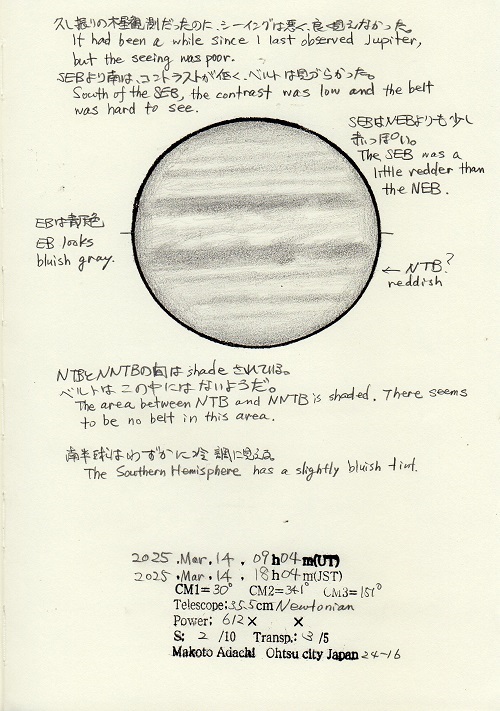 久し振りの木星観測だったのに、シーイングは悪く、良く見えなかった。
It had been a while since I last observed Jupiter,
but the seeing was poor.
SEBより南は、コントラストが低く、ベルトは見づらかった。
South of the SEB, the contrast was low and the belt
was hard to see.
SEBはNEBよりも少し
赤っぽい。
The SEB was a
little redder than
the NEB.
EBは青灰色
EB looks
bluish gray.
← NTB?
reddish
NTBとNNTBの間はshadeされている。
ベルトはこの中にはないようだ。
The area between NTB and NNTB is shaded. There seems
to be no belt in this area.
南半球はわずかに冷調に見える。
The Southern Hemisphere has a slightly bluish tint.
2025.Mar.14, 09h04m(UT)
2025.Mar.14, 18h04m(JST)
CM1=30° CM2=341° CM3=151°
Telescope;35.5cm Newtonian
Power; 612× ×
S; 2 /10 Transp.; 3 /5
Makoto Adachi Ohtsu city Japan 24-16